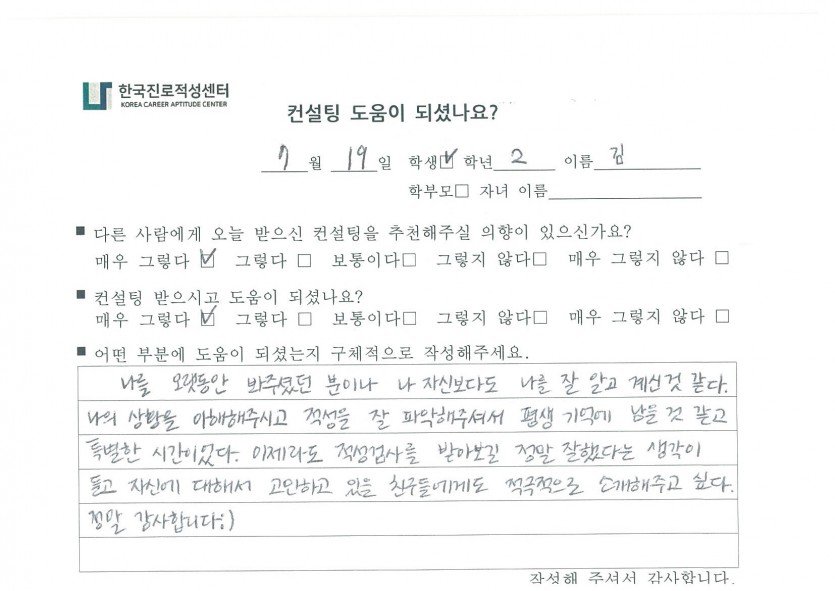 한국진로적성센터
KOREA CAREER APTITUDE CENTER
컨설팅 도움이 되셨나요?
7 월 19 일 학생☑ 학년 2 이름 김
학부모□ 자녀 이름
■ 다른 사람에게 오늘 받으신 컨설팅을 추천해주실 의향이 있으신가요?
매우 그렇다 ☑ 그렇다 □ 보통이다□ 그렇지 않다□ 매우 그렇지 않다 □
■ 컨설팅 받으시고 도움이 되셨나요?
매우 그렇다 ☑ 그렇다 □ 보통이다□ 그렇지 않다□ 매우 그렇지 않다 □
■ 어떤 부분에 도움이 되셨는지 구체적으로 작성해주세요.
나를 오랫동안 봐주셨던 분이나 나 자신보다도 나를 잘 알고 계신것 같다.
나의 상황을 이해해주시고 적성을 잘 파악해주셔서 평생 기억에 남을 것 같고
특별한 시간이었다. 이제라도 적성검사를 받아보길 정말 잘했다는 생각이
들고 자신에 대해서 고민하고 있을 친구들에게도 적극적으로 소개해주고 싶다.
정말 감사합니다:)
작성해 주셔서 감사합니다.